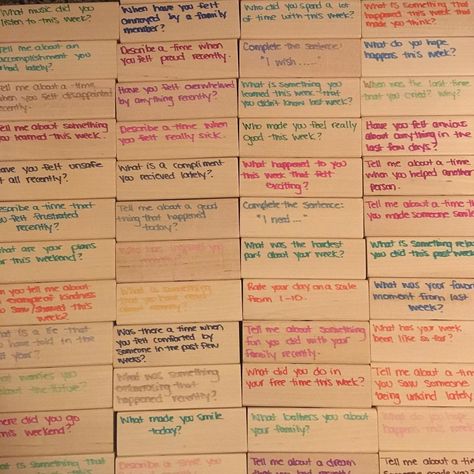 What music did you
listen to this week?
When have you felt
annoyed by a family
member?
Who did you spend a lot
of time with this week?
What is something that
happened this week that
made you think?
Tell me about an
accomplishment you
had lately.
Describe a time when
you felt proud recently.
Complete the Sentence:
"I wish ....."
What do you hope
happens this week?
Tell me about a time
when you felt disappointed
recently.
Have you felt overwhelmed
by anything recently?
What is something you
learned this week that
you didn't know last week?
When was the last time
that you cried? Why?
Tell me about something
you learned this week.
Describe a time when
you felt really sick.
Who made you feel really
good this week?
Have you felt anxious
about anything in the
last few days?
Have you felt unsafe
at all recently?
What is a compliment
you recieved lately?
What happened to you
this week that felt
exciting?
Tell me about a time
when you helped another
person.
Describe a time that
you felt frustrated
recently?
Tell me about a good
thing that happened
today?
Complete the Sentence:
"I need ..."
Tell me about a time
you made someone smile
What are your plans
for this weekend?
What was the hardest
part about your week?
What is something relax
you did this past week
When you tell me about
example of kindness
you saw/showed this
week?
What is something
that you
about recently?
Rate your day on a scale
from 1-10.
What was your favor
moment from last
week?
What is a lie that
you have told in the
year?
Was there a time when
you felt comforted by
someone in the past few
weeks?
Tell me about something
fun you did with your
family recently.
What has your week
been like so far?
What worries you
about the future?
What was something
embarrassing that
happened recently?
What did you do in
your free time this week?
Tell me about a time
you saw someone
being unkind lately
Where did you go
this weekend?
What made you smile
today?
What bothers you about
your family?
What is something that
Describe a time
Tell me about a dream
that you had
Tell me about a time